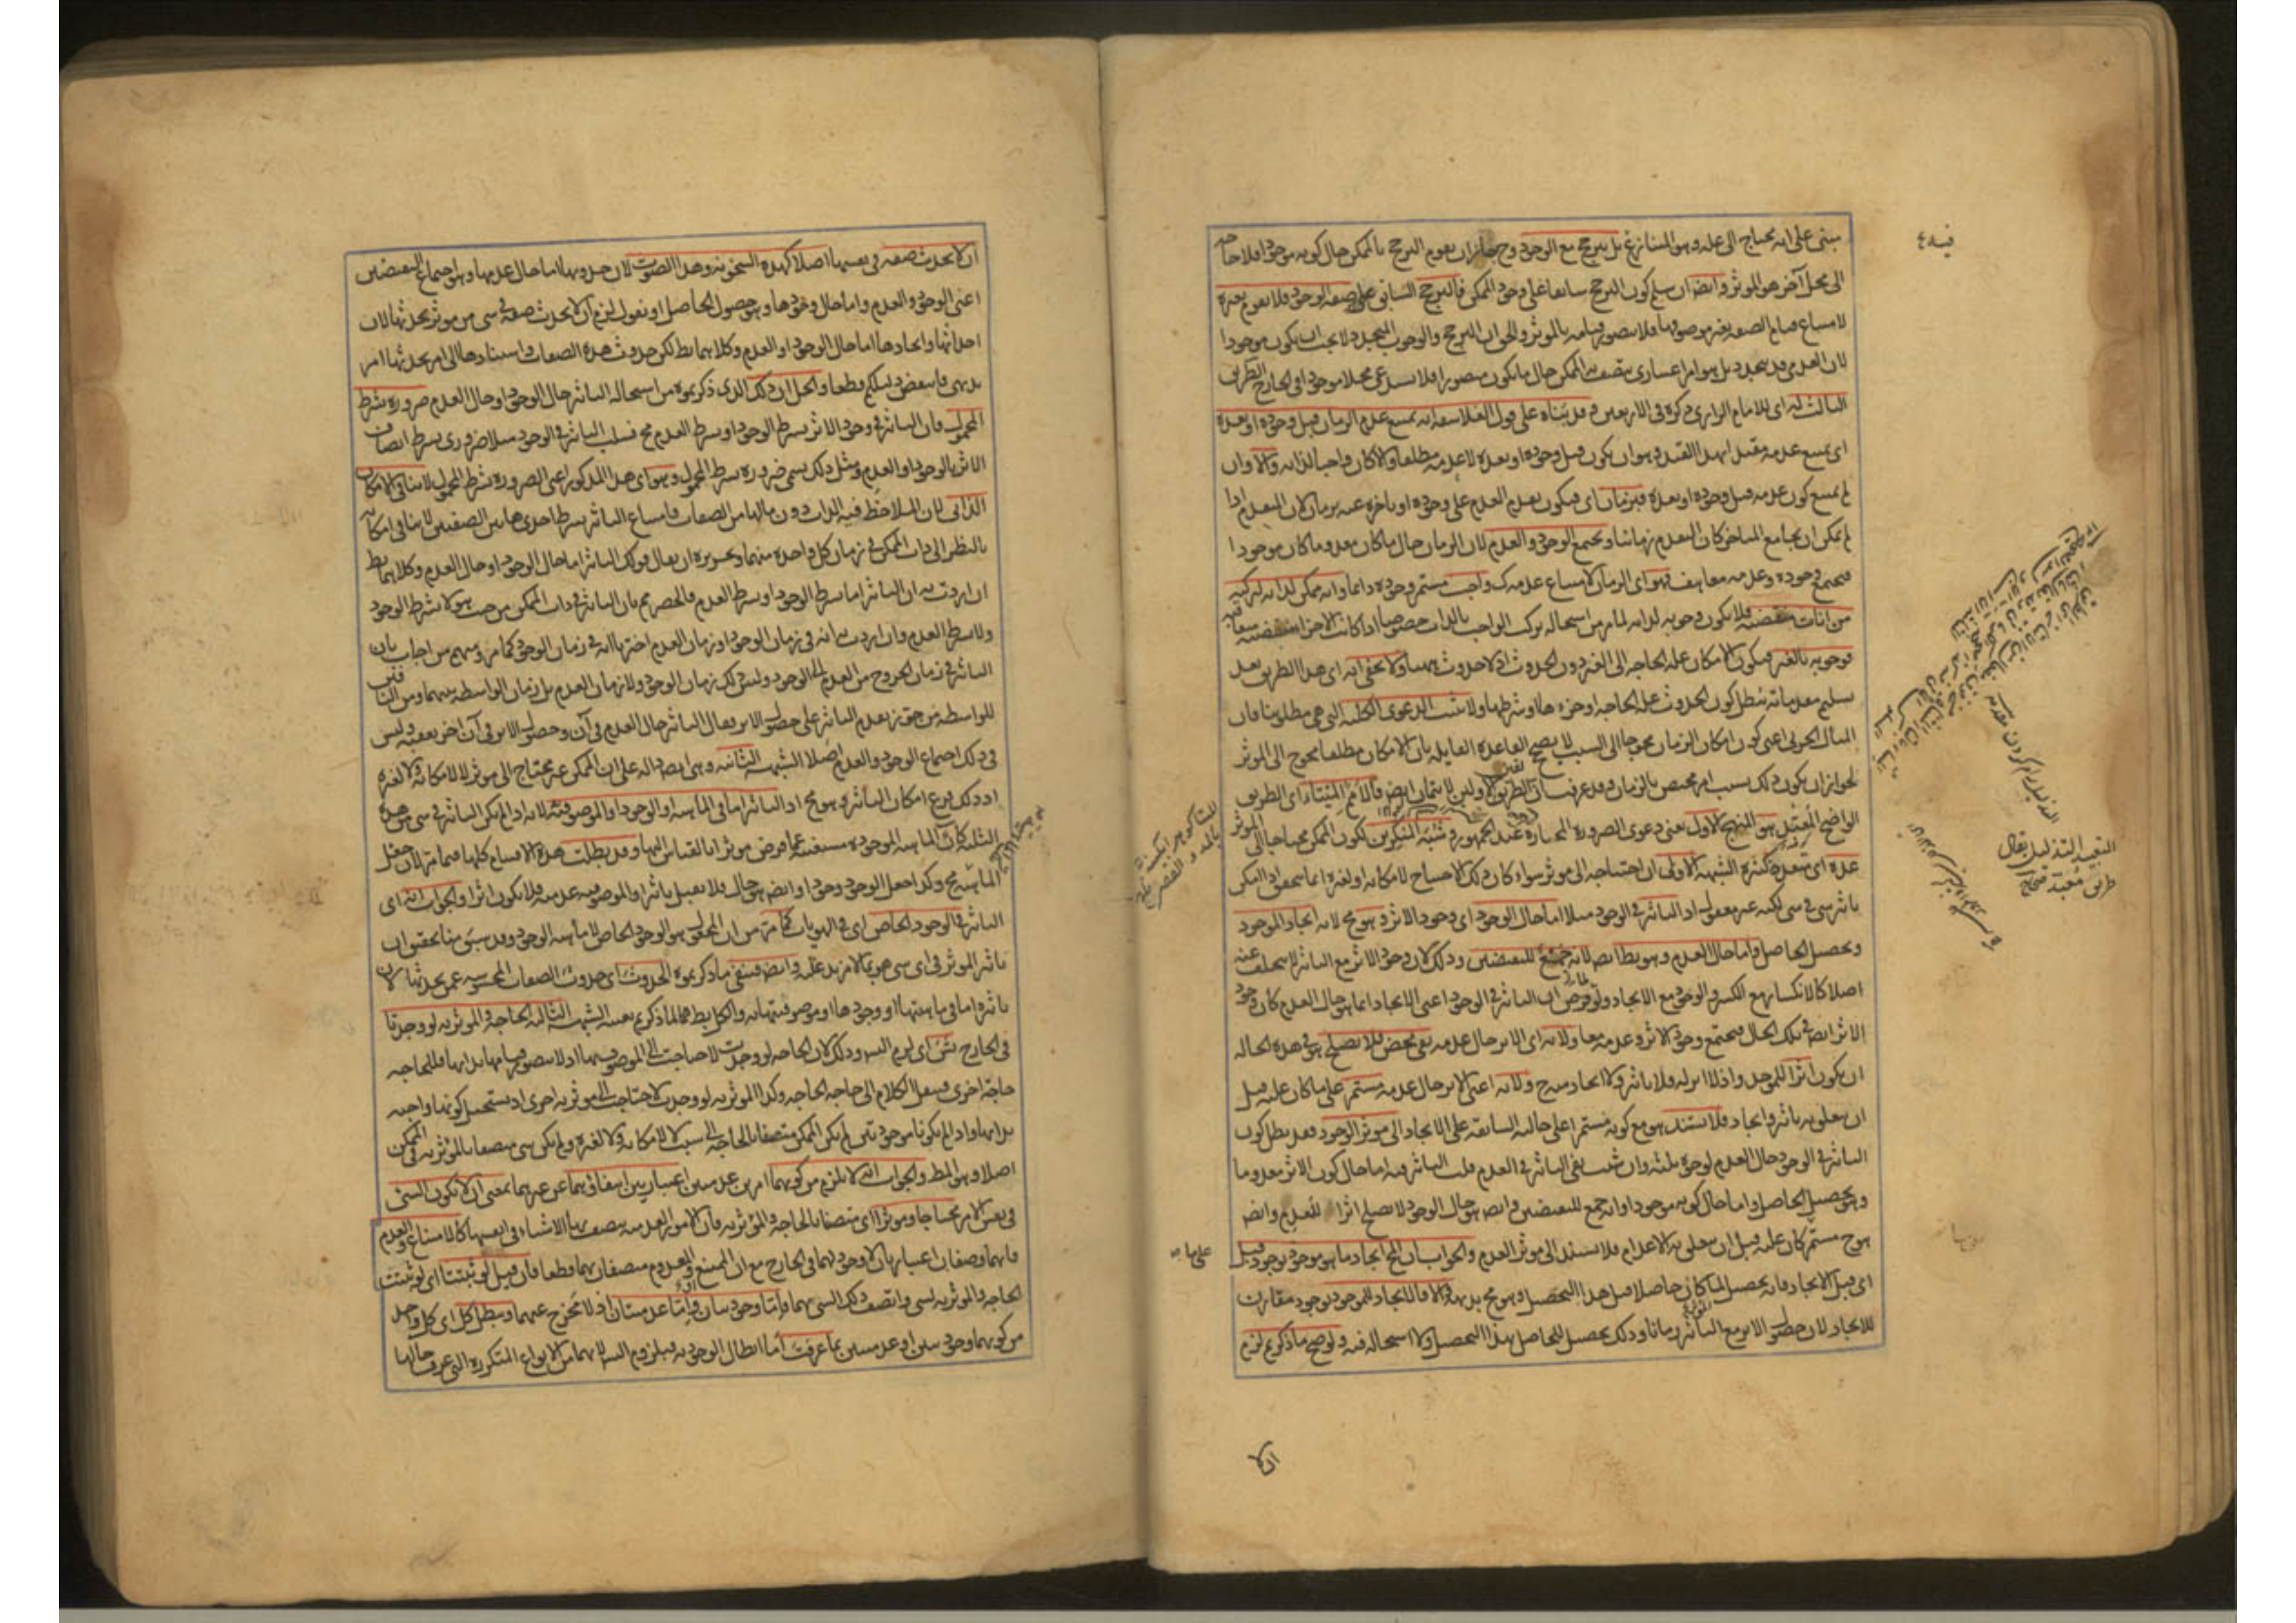 مبنى على انه يحتاج الى علة وهو المتنازع فيه بل يترجح مع الوجود وح جاز ان يقوم الترجح بالممكن حال كونه موجودا فلا حاجة
الى محل آخر هو المؤثر وايضا ان سلم كون الترجح سابقا على وجود الممكن فالترجح السابق على صفة الوجود فلا يقوم بغيره
لامتناع قيام الصفة بغير موصوفها فلا يتصور قيامه بالمؤثر والجواب ان الترجح والوجوب المتجدد لا يجب ان يكون موجودا
لان العدمى قد يتجدد بل هو امر اعتبارى يتصف به الممكن حال ما يكون متصورا فلا يستدعى محلا موجودا فى الخارج الطريق
الثالث له اى للامام الرازى ذكره فى الاربعين قد بناه على قول الفلاسفة انه يمتنع عدم الزمان قبل وجوده او بعده
اى يمتنع عدمه مقيدا بهذا القيد وهو ان يكون قبل وجوده او بعده لا عدمه مطلقا والا كان واجبا لذاته والا وان
لم يمتنع كون عدمه قبل وجوده او بعده فبزمان اى فيكون تقدم العدم على وجوده او تاخره عنه بزمان لان المتقدم اذا
لم يمكن ان يجامع المتاخر كان التقدم زمانيا ويجتمع الوجود والعدم لان الزمان حال ما كان معدوما كان موجودا
فيجتمع وجوده وعدمه معا هف فهو اى الزمان لامتناع عدمه كك واجب مستمر وجوده دائما وانه ممكن لذاته لتركبه
من آنات منقضية فلا يكون وجوبه لذاته لما مر من استحالة تركب الواجب بالذات خصوصا اذا كانت الاجزاء منقضية متعاقبة
فوجوبه بالغير فيكون الامكان علة الحاجة الى الغير دون الحدوث اذ لا حدوث ههنا ولا يخفى انه اى هذا الطريق بعد
تسليم مقدماته يبطل كون الحدوث علة الحاجة او جزءها او شرطها ولا يثبت الدعوى الكلية التى هى مطلوبنا فان
المثال الجزئى اعنى كون امكان الزمان محوجا الى السبب لا يصحح القاعدة القايلة بان الامكان مطلقا يحوج الى المؤثر
لجواز ان يكون ذلك بسبب امر مختص بالزمان وقد عرفت ان الطريقين الاولين لا يتمان ايضا فالامم المئتاء اى الطريق
الواضح المعبد هو النهج الاول يعنى دعوى الضرورة المختارة عند الجمهور وشبه المنكرين لكون الممكن محتاجا الى المؤثر
عدة اى متعددة كثيرة الشبهة الاولى ان احتياجه الى مؤثر سواء كان ذلك الاحتياج لامكانه او لغيره انما يتحقق اذا امكن
تاثير شى فى شى لكنه غير معقول اذ التاثير فى الوجود مثلا اما حال الوجود اى وجود الاثر وهو مح لانه ايجاد الموجود
وتحصيل الحاصل واما حال العدم وهو بط ايضا لانه جمع للنقيضين وذلك لان وجود الاثر مع التاثير لا يتخلف عنه
اصلا كالانكسار مع الكسر والوجود مع الايجاد ولو فرض ان التاثير فى الوجود اعنى الايجاد انما هو حال العدم كان وجود
الاثر ايضا فى تلك الحال فيجتمع وجود الاثر وعدمه معا ولانه اى الاثر حال عدمه نفى محض فلا يصلح هو فى هذه الحالة
ان يكون اثرا للموجد واذ لا اثر له فلا تاثير ولا ايجاد منه ح ولانه اعنى الاثر حال عدمه مستمر على ما كان عليه قبل
ان يتعلق به تاثير وايجاد فلا يستند هو مع كونه مستمرا على حاله السابقة على الايجاد الى موثر الوجود فقد بطل كون
التاثير فى الوجود حال العدم لوجوه ثلثة وان شئت نفى التاثير فى العدم قلت التاثير فيه اما حال كون الاثر معدوما
وهو تحصيل الحاصل واما حال كونه موجودا وانه جمع للنقيضين وايضا هو حال الوجود لا يصلح اثرا للعدم وايضا
هو ح مستمر كان عليه قبل ان يتعلق به الاعدام فلا يستند الى موثر العدم والجواب ان المح ايجاد ما هو موجود بوجود قبل
اى قبل الايجاد فانه تحصيل لما كان حاصلا قبل هذا التحصيل وهو مح بديهة لا الايجاد للموجود بوجود مقارن
للايجاد لان حصول الاثر مع التاثير زمانا وذلك تحصيل للحاصل بهذا التحصيل ولا استحالة فيه ولو صح ما ذكرتم لزم
ان لا
ان لا يحدث صفة فى نفسها اصلا كهذه السخونة وهذا الصوت لان حدوثها اما حال عدمها وهو اجتماع النقيضين
اعنى الوجود والعدم واما حال وجودها وهو حصول الحاصل او نقول لزم ان لا يحدث صفة فى شى من موثر يحدثها لان
احداثها وايجادها اما حال الوجود او العدم وكلاهما بط لكن حدوث هذه الصفات واستنادها الى امر يحدثها امر
بديهى فانتقض دليلكم قطعا والحل ان ذلك الذى ذكرتموه من استحالة التاثير حال الوجود او حال العدم ضرورة بشرط
المحمول فان التاثير فى وجود الاثر بشرط الوجود او بشرط العدم مح فسلب التاثير فى الوجود مثلا ضرورى بشرط اتصاف
الاثر بالوجود او العدم ومثل ذلك يسمى ضرورة بشرط المحمول وهو اى هذا المذكور اعنى الضرورة بشرط المحمول لا ينافى الامكان
الذاتى لان الملاحظ فيه الذات دون مالها من الصفات فامتناع التاثير بشرط احدى هاتين الصفتين لا ينافى امكانه
بالنظر الى ذات الممكن فى زمان كل واحدة منهما وتحريره ان يقال قولك التاثير اما حال الوجود او حال العدم وكلاهما بط
ان اردت به ان التاثير اما بشرط الوجود او بشرط العدم فالحصر مم بان التاثير فى ذات الممكن من حيث هو لا بشرط الوجود
ولا بشرط العدم وان اردت به انه فى زمان الوجود او زمان العدم اخترنا انه فى زمان الوجود كما مر ومنهم من اجاب بان
التاثير فى زمان الخروج من العدم الى الوجود وليس ذلك زمان الوجود ولا زمان العدم بل زمان الواسطة بينهما ومن النافين
للواسطة من جوز تقدم التاثير على حصول الاثر فقال التاثير حال العدم فى آن وحصول الاثر فى آن آخر يعقبه وليس
فى ذلك اجتماع الوجود والعدم اصلا الشبهة الثانية وهى ايضا دالة على ان الممكن غير محتاج الى موثر لا لامكانه ولا لغيره
اذ ذلك فرع امكان التاثير وهو مح اذ التاثير اما فى الماهية او الوجود او الموصوفية لانه اذا لم يكن التاثير فى شى من هذه
الثلثة كانت الماهية الموجودة مستغنية عما فرض موثرا بالقياس اليها وقد بطلت هذه الاقسام كلها فيما مر لان جعل
الماهية مح وكذا جعل الوجود وجودا وايضا هو حال فلا يقبل تاثيرا والموصوفية عدمية فلا تكون اثرا والجواب انه اى
التاثير فى الوجود الخاص اى فى الهويات كما مر من ان المجعول هو الوجود الخاص لا ماهية الوجود وقد سبق منا تحقيق ان
تاثير الموثر فى اى شى هو بما لا مزيد عليه وايضا فينفى ما ذكرتموه الحدوث اى حدوث الصفات المحسوسة عمن يحدثها لان
تاثيره اما فى ماهيتها او وجودها او موصوفيتها به والكل بط لما ذكرتم بعينه الشبهة الثالثة الحاجة والموثرية لو وجدتا
فى الخارج تس اى لزم التسه وذلك لان الحاجة لو وجدت لاحتاجت الى الموصوف بها اذ لا يتصور قيامها بذاتها فللحاجة
حاجة اخرى فننقل الكلام الى حاجة الحاجة وكذا الموثرية لو وجدت لاحتاجت الى موثرية اخرى اذ يستحيل كونها واجبة
بذاتها واذا لم يكونا موجودتين لم يكن الممكن متصفا بالحاجة الى سبب لا لامكانه ولا لغيره ولم يكن شى متصفا بالموثرية فى الممكن
اصلا وهو المط والجواب انه لا يلزم من كونهما امرين عدميين اعتباريين انتفاؤهما عن غيرهما بمعنى ان لا يكون الشى
فى نفس الامر محتاجا وموثرا اى متصفا بالحاجة والموثرية فان الامور العدمية يتصف بها الاشياء فى انفسها كالامتناع والعدم
فانهما وصفان اعتباريان لا وجود لهما فى الخارج مع ان الممتنع والمعدوم متصفان بهما قطعا فان قيل لو ثبتتا اى لو ثبتت
الحاجة والموثرية لشى واتصف ذلك الشى بهما فاما وجوديتان واما عدميتان اذ لا مخرج عنهما ويبطل كل اى كل واحد
من كونهما وجوديتين او عدميتين بما عرفت اما ابطال الوجودية فبلزوم التسه لانهما من الانواع المتكررة التى عرف حالها